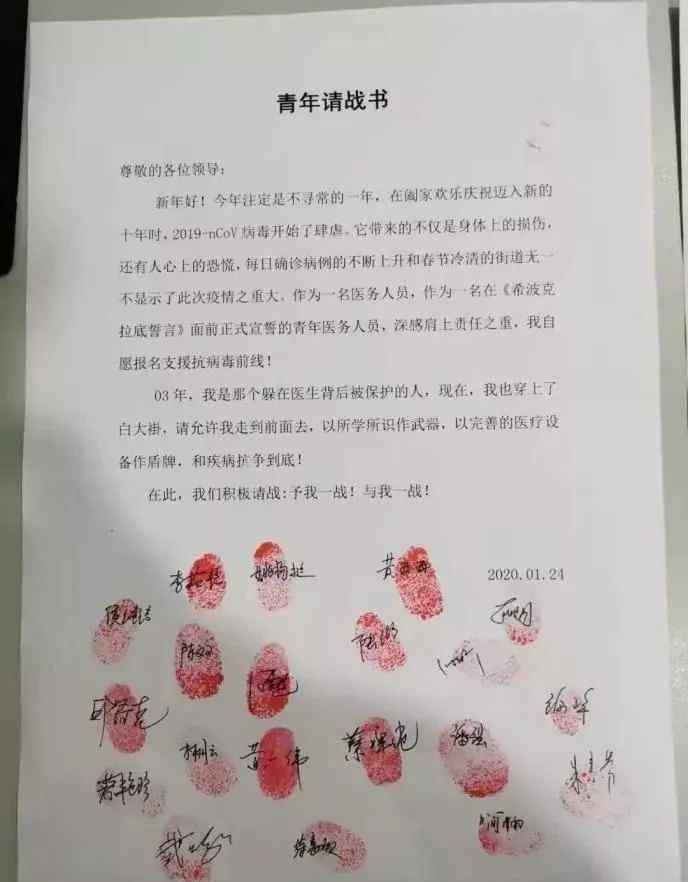 青年请战书
尊敬的各位领导：
新年好！今年注定是不寻常的一年，在阖家欢乐庆祝迈入新的
十年时，2019-nCoV 病毒开始了肆虐。它带来的不仅是身体上的损伤，
还有人心上的恐慌，每日确诊病例的不断上升和春节冷清的街道无一
不显示了此次疫情之重大。作为一名医务人员，作为一名在《希波克
拉底誓言》面前正式宣誓的青年医务人员，深感肩上责任之重，我自
愿报名支援抗病毒前线！
03 年，我是那个躲在医生背后被保护的人，现在，我也穿上了
白大褂，请允许我走到前面去，以所学所识作武器，以完善的医疗设
备作盾牌，和疾病抗争到底！
在此，我们积极请战:予我一战！与我一战！
2020.01.24